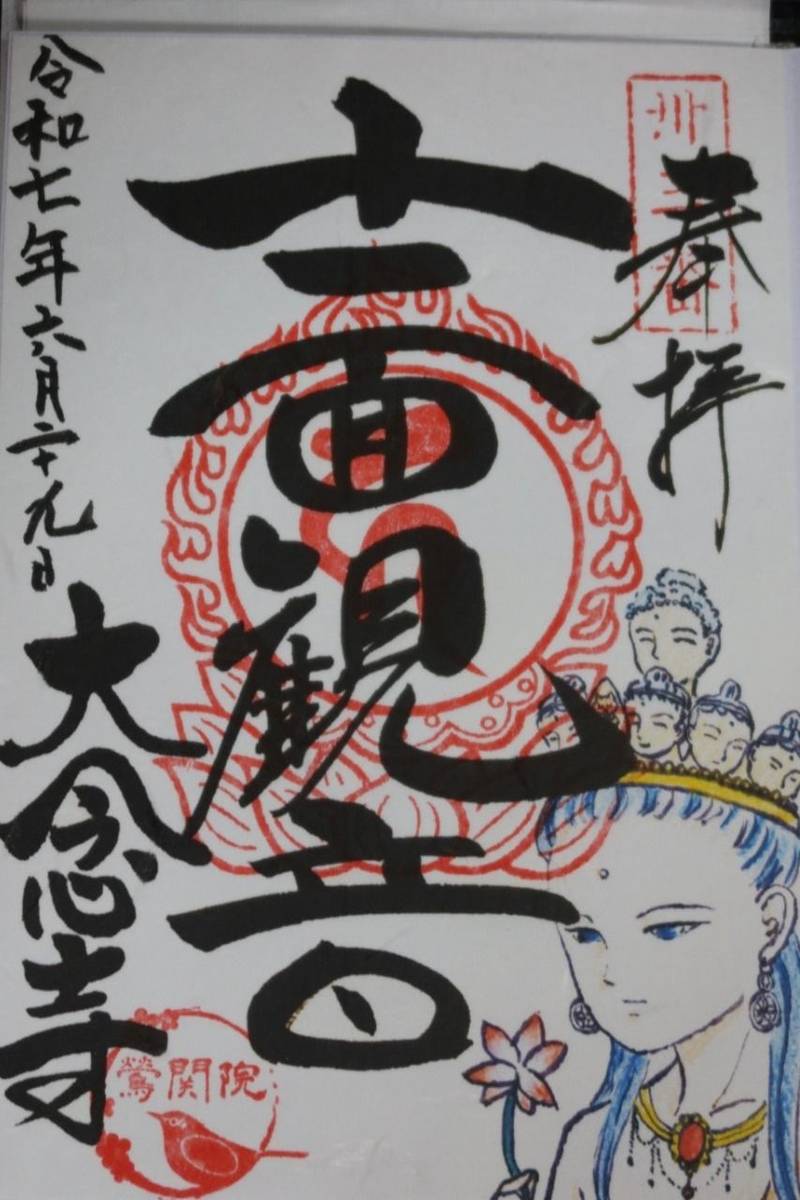 奉拝
十一面観音
令和七年六月二十九日
大念寺
鶯関院